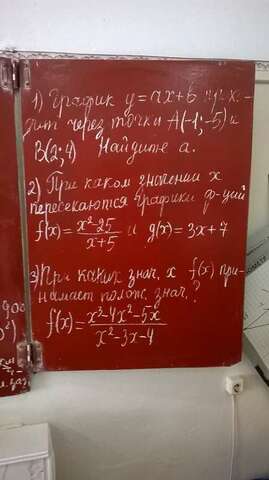 1) График y=ax+b прохо-
дит через точки A(-1;-5) и
B(2;4) Найдите a.
2) При каком значении x
пересекаются графики ф-ций
f(x)=\frac{x²-25}{x+5} и g(x)=3x+7
3) При каких знач. x f(x) при-
нимает полож. знач.?
f(x)=\frac{x³-4x²-5x}{x²-3x-4}